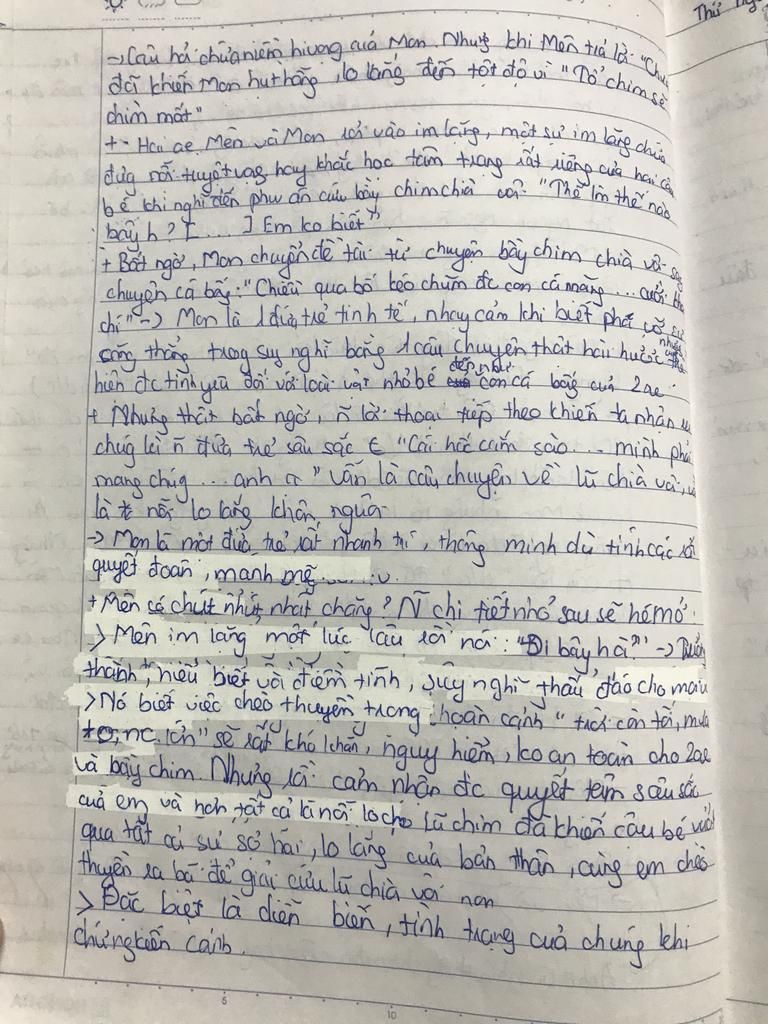 Thứ
-> Câu hỏi chứa niềm hi vọng của Mon. Nhưng khi Mên trả lời "Chưa
đã khiến Mon hụt hẫng, lo lắng đến tột độ vì "Tổ chim sẽ
chìm mất"
+ Hai ae Mên và Mon rơi vào im lặng, một sự im lặng chứa
đựng nỗi tuyệt vọng hay khắc họa tâm trạng rất riêng của hai cậu
bé khi nghĩ đến phư án cứu bầy chim chìa vôi "Thế làm thế nào
bây h? [....] Em ko biết"
+ Bất ngờ, Mon chuyển đề tài từ chuyện bầy chim chìa vôi sag
chuyện cá bống: "Chiều qua bố kéo chũm đc con cá măng ... cười
chí" -> Mon là 1 đứa trẻ tinh tế, nhạy cảm khi biết phá vỡ sự
căng thẳng trong suy nghĩ bằng 1 câu chuyện thật hài hước
hiện đc tình yêu đối với loài vật nhỏ bé con cá bống của 2ae
+ Nhưng thật bất ngờ, n~ lời thoại tiếp theo khiến ta nhận
chúg là n~ đứa trẻ sâu sắc "Cái hốc cắm sào ... mình phải
mang chúg ... anh ạ" vẫn là câu chuyện về lũ chìa vôi,
là nỗi lo lắng khôn nguôi
-> Mon là một đứa trẻ rất nhanh trí, thông minh dù tính các rất
quyết đoán, mạnh mẽ
+ Mên có chút nhút nhát chăng? N~ chi tiết nhỏ sau sẽ hé mở:
> Mên im lặng một lúc lâu rồi nói: "Đi bây h à?" ->
thành, hiểu biết và điềm tĩnh, suy nghĩ thấu đáo cho
> Nó biết việc chèo thuyền trong hoàn cảnh "trời còn tối, mưa
to, nc lớn" sẽ rất khó khăn, nguy hiểm, ko an toàn cho 2ae
và bầy chim. Nhưng rồi cảm nhận đc quyết tâm sâu sắc
của em và hơn tất cả là nỗi lo cho lũ chim đã khiến cậu bé vượt
qua tất cả sự sợ hãi, lo lắng của bản thân, cùng em chèo
thuyền ra bãi để giải cứu lũ chìa vôi non
> Đặc biệt là diễn biến, tình trạng của chúng khi
chứng kiến cảnh.
5
10